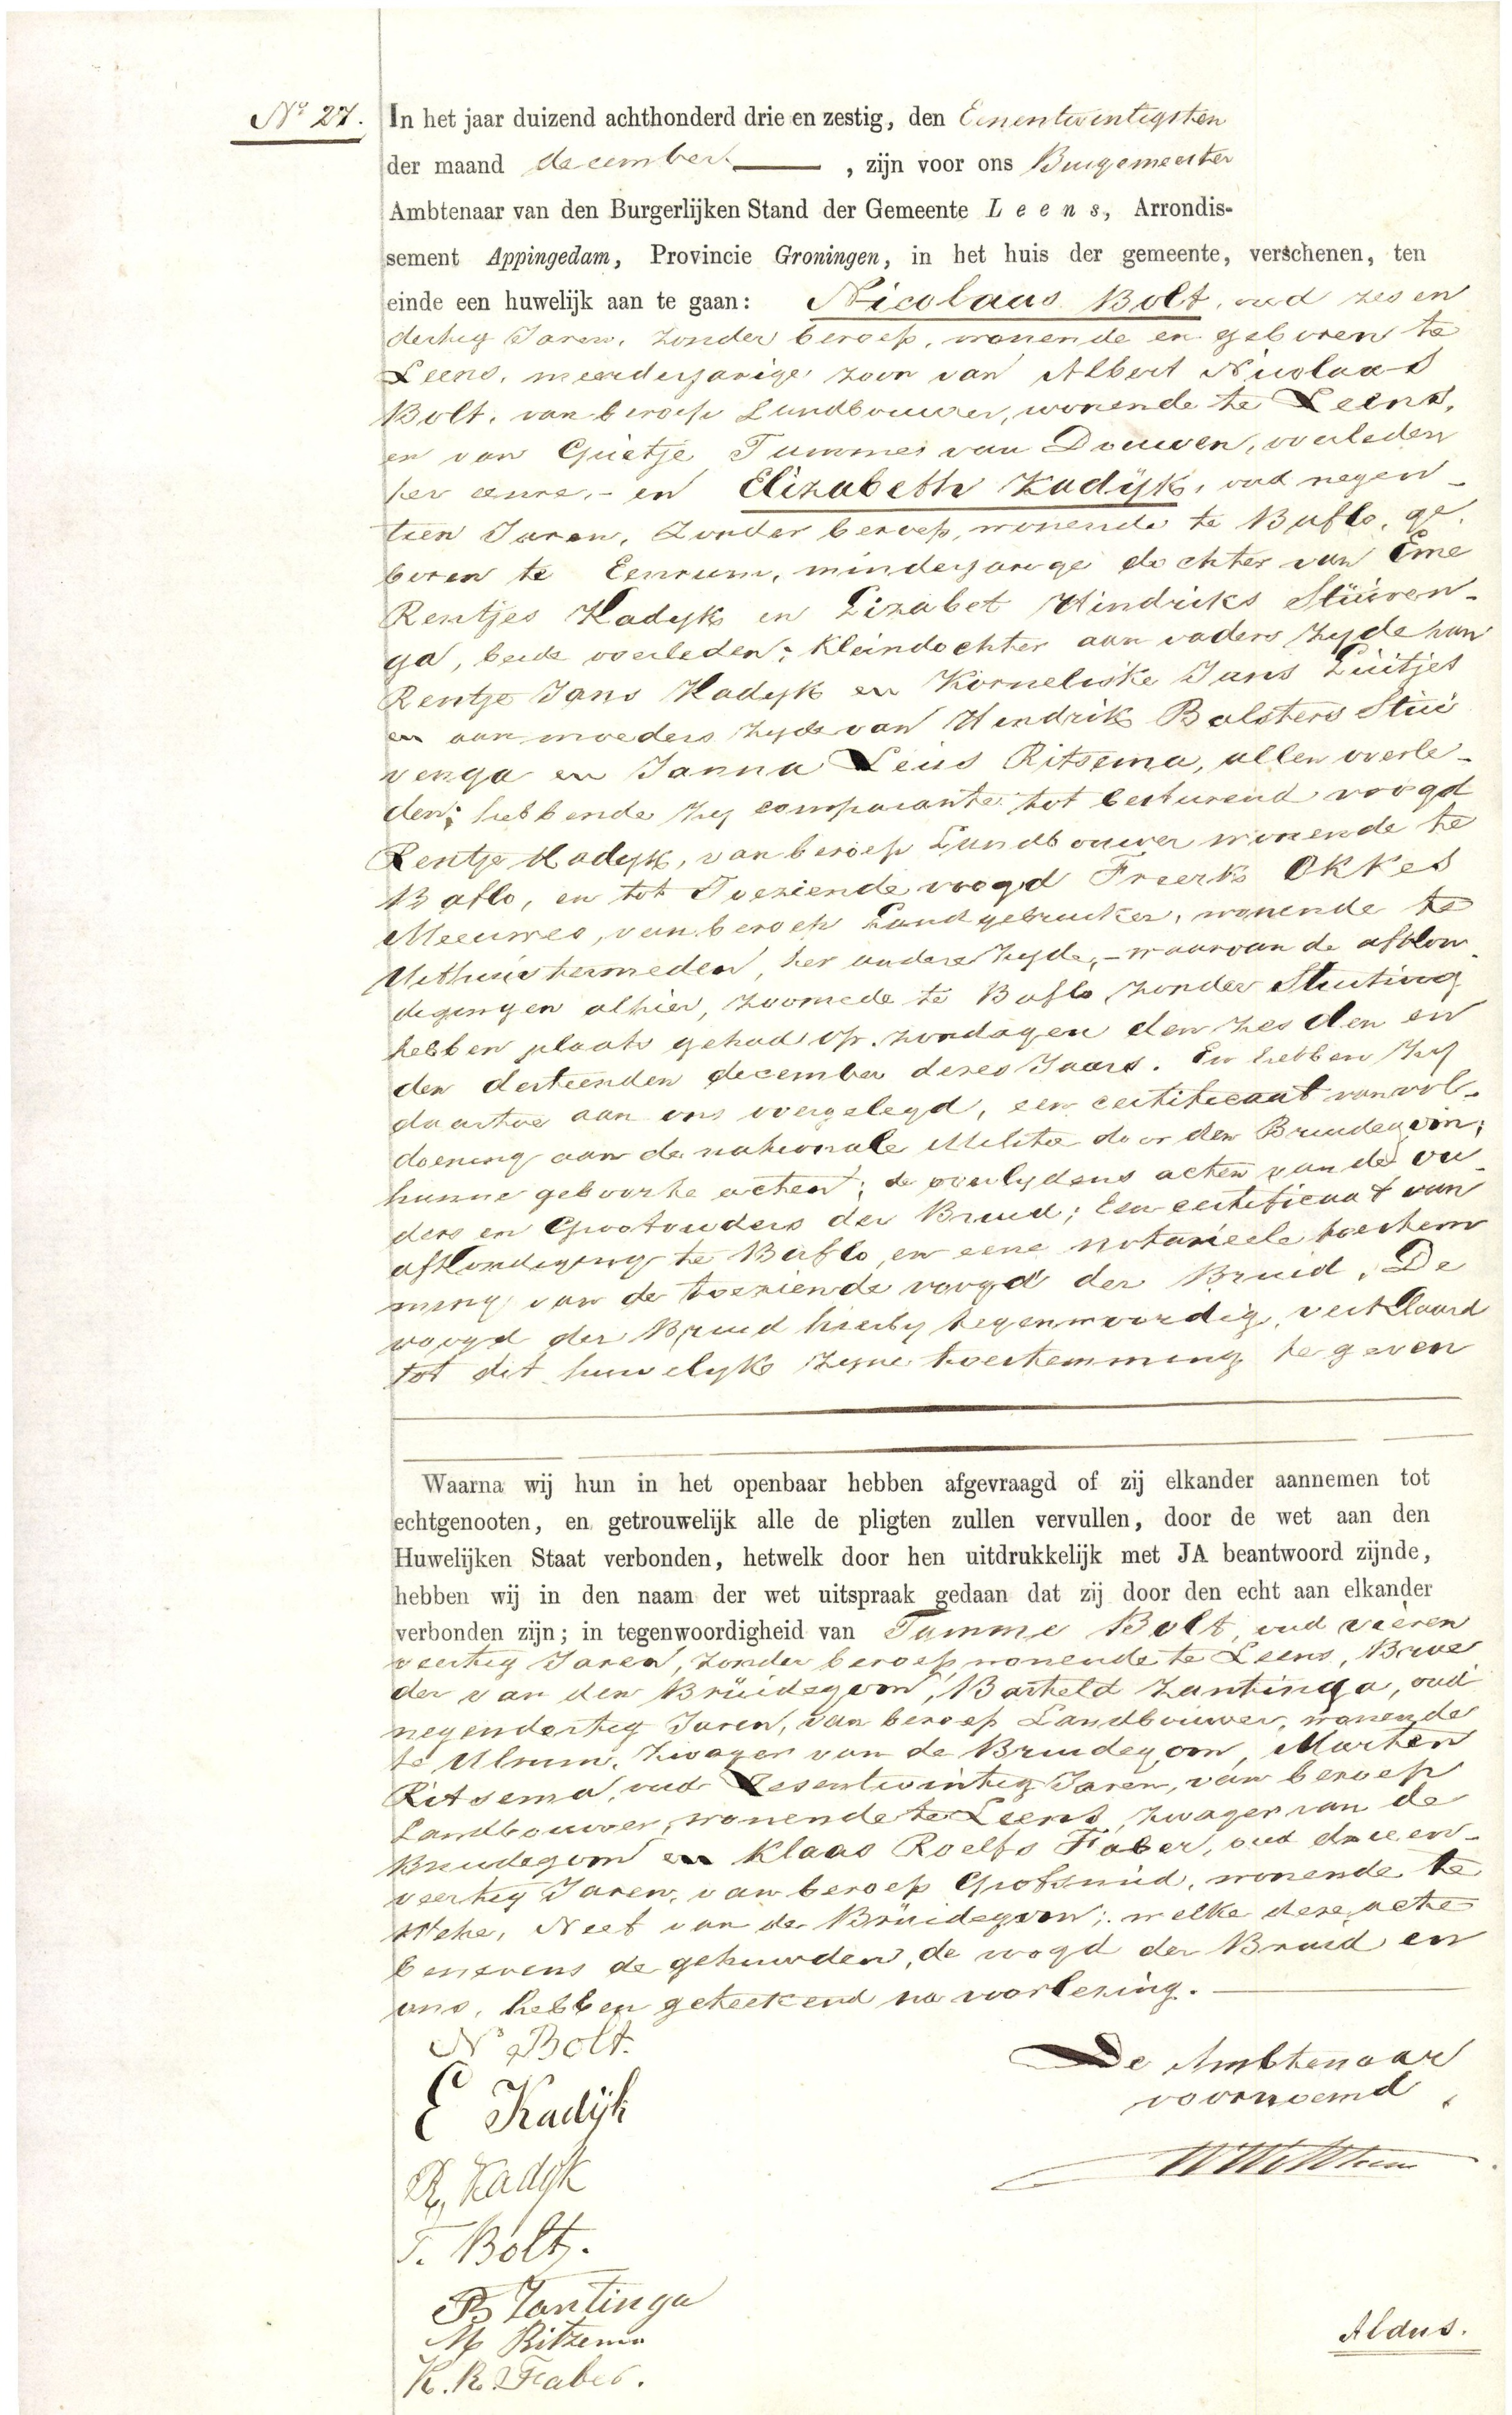 No 27. In het jaar duizend achthonderd drie en zestig, den Eenentwintigsten
der maand december , zijn voor ons Burgemeester
Ambtenaar van den Burgerlijken Stand der Gemeente Leens, Arrondis-
sement Appingedam, Provincie Groningen, in het huis der gemeente, verschenen, ten
einde een huwelijk aan te gaan: Nicolaas Bolt, oud zes en
dertig Jaren, zonder beroep, wonende en geboren te
Leens, meerderjarige zoon van Albert Nicolaas
Bolt, van beroep Landbouwer, wonende te Leens,
en van Grietje Tammes van Douwen, overleden
ter eenre, - en Elizabeth Kadijk, oud negen-
tien Jaren, zonder beroep, wonende te Baflo, ge-
boren te Eenrum, minderjarige dochter van Eme
Rentjes Kadijk en Lizabet Hindriks Stuiven-
ga, beide overleden; kleindochter aan vaders zijde van
Rentje Jans Kadijk en Korneliske Jans Luitjes
en aan moeders zijde van Hendrik Balsters Stui
venga en Janna Leuis Ritsema, allen overle-
den; hebbende zij comparante tot besturend voogd
Rentje Kadijk, van beroep Landbouwer wonende te
Baflo, en tot Toeziende voogd Freerk Okkes
Meeuwes, van beroep Landgebruiker, wonende te
Uithuistermeden, ter andere zijde, - waarvan de afkon
digingen alhier, zoomede te Baflo zonder Stuiting
hebben plaats gehad op zondagen den zesden en
den dertienden december dezes Jaars. En hebben zij
daartoe aan ons overgelegd, een certificaat van vol-
doening aan de nationale Militie door den Bruidegom;
hunne geboorte acten; de overlijdens acten van de ou-
ders en Grootouders der Bruid; Een certificaat van
afkondiging te Baflo, en eene notarieele toestem
ming van de toeziende voogd der Bruid. De
voogd der Bruid hierbij tegenwoordig, verklaard
tot dit huwelijk zijne toestemming te geven
Waarna wij hun in het openbaar hebben afgevraagd of zij elkander aannemen tot
echtgenooten, en getrouwelijk alle de pligten zullen vervullen, door de wet aan den
Huwelijken Staat verbonden, hetwelk door hen uitdrukkelijk met JA beantwoord zijnde,
hebben wij in den naam der wet uitspraak gedaan dat zij door den echt aan elkander
verbonden zijn; in tegenwoordigheid van Tamme Bolt, oud vieren
veertig Jaren, zonder beroep wonende te Leens, Broe
der van den Bruidegom, Barteld Zantinga, oud
negendertig Jaren, van beroep Landbouwer, wonende
te Ulrum, zwager van de Bruidegom, Marten
Ritsema, oud Zesentwintig Jaren, van beroep
Landbouwer, wonende te Leens, zwager van de
Bruidegom en Klaas Roelfs Faber, oud drieen-
veertig Jaren, van beroep Grofsmid, wonende te
Wehe, Neef van de Bruidegom; welke deze acte
benevens de gehuwden, de voogd der Bruid en
ons, hebben geteekend na voorlezing.
N Bolt.
E Kadijk
R, Kadijk
T. Bolt.
B Zantinga
M Ritzema
K. R. Faber.
De Ambtenaar
voornoemd
Aldus.